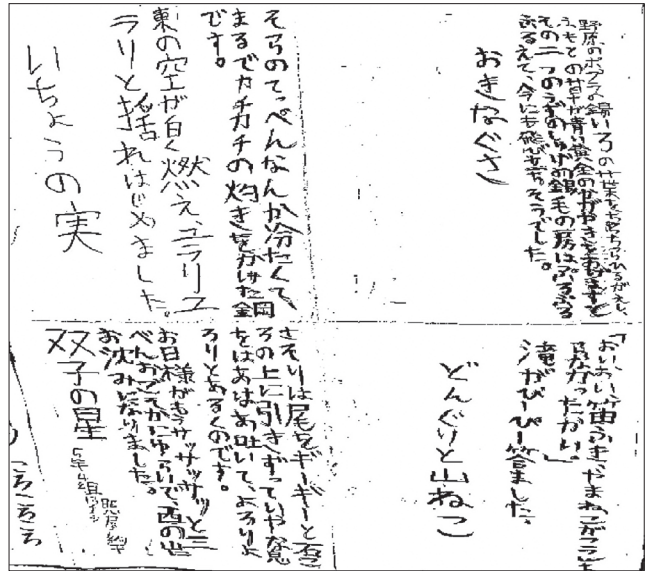 野原のポプラの錫いろの葉をちらちらひるがえし、
ふもとの草が青い黄金のかがやきをあげますと
その二つのうずのしゅげの銀毛の房はぷるぷる
ふるえて、今にも飛び立ちそうでした。
おきなぐさ
そらのてっぺんなんか冷たくて、
まるでカチカチの灼きをかけた鋼
です。
東の空が白く燃え、ユラリユ
ラリと揺れはじめました。
いちょうの実
「おいおい笛ふき、やまねこが
らなかったかい。」
滝がぴーぴー答ました。
どんぐりと山ねこ
さそりは尾をギーギーと石こ
ろの上に引きずっていやな息
をはあはあ吐いて、よろりよ
ろりとあるくのです。
お日様がもうサッサッサッと三
べんおごそかにゆらいで、西の山に
お沈みになりました。
双子の星
照屋
ころころ